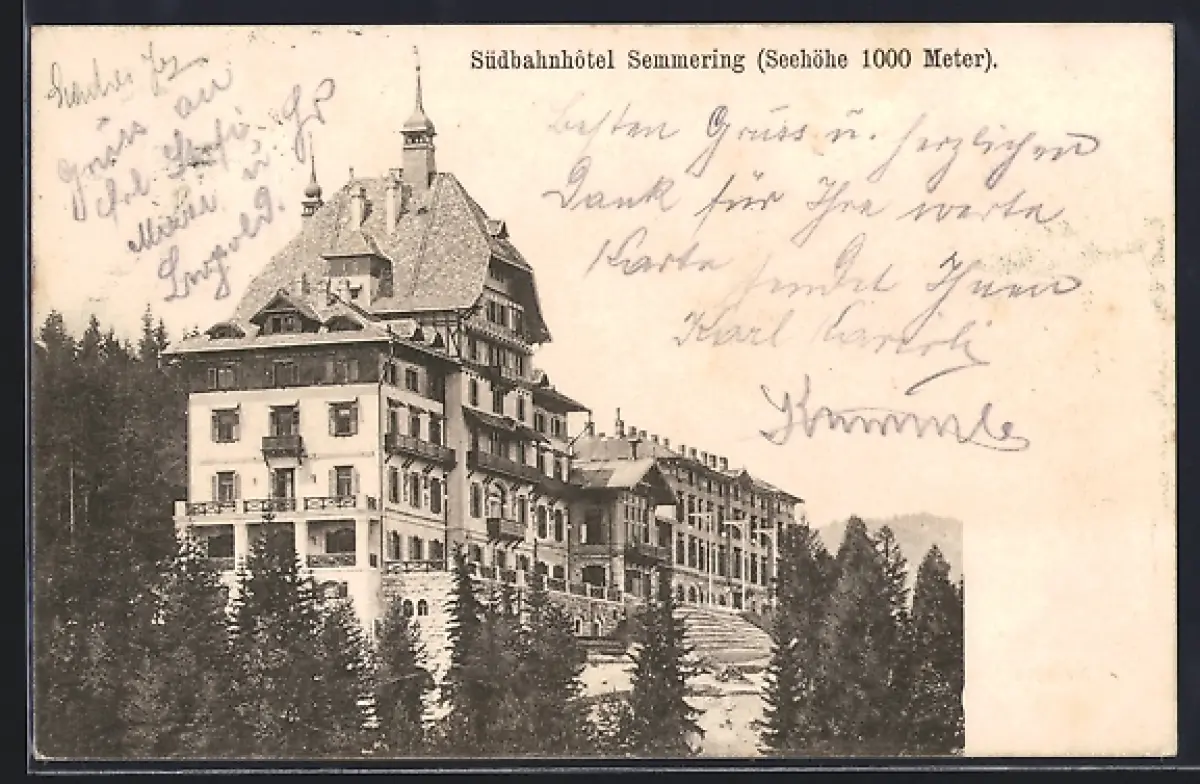 Südbahnhôtel Semmering (Seehöhe 1000 Meter).
Gruss an
Frl. Stefi
Mitzi u.
Leopold.
Besten Gruss u. herzlichen
Dank für Ihre werte
Karte sendet Ihnen
Karl